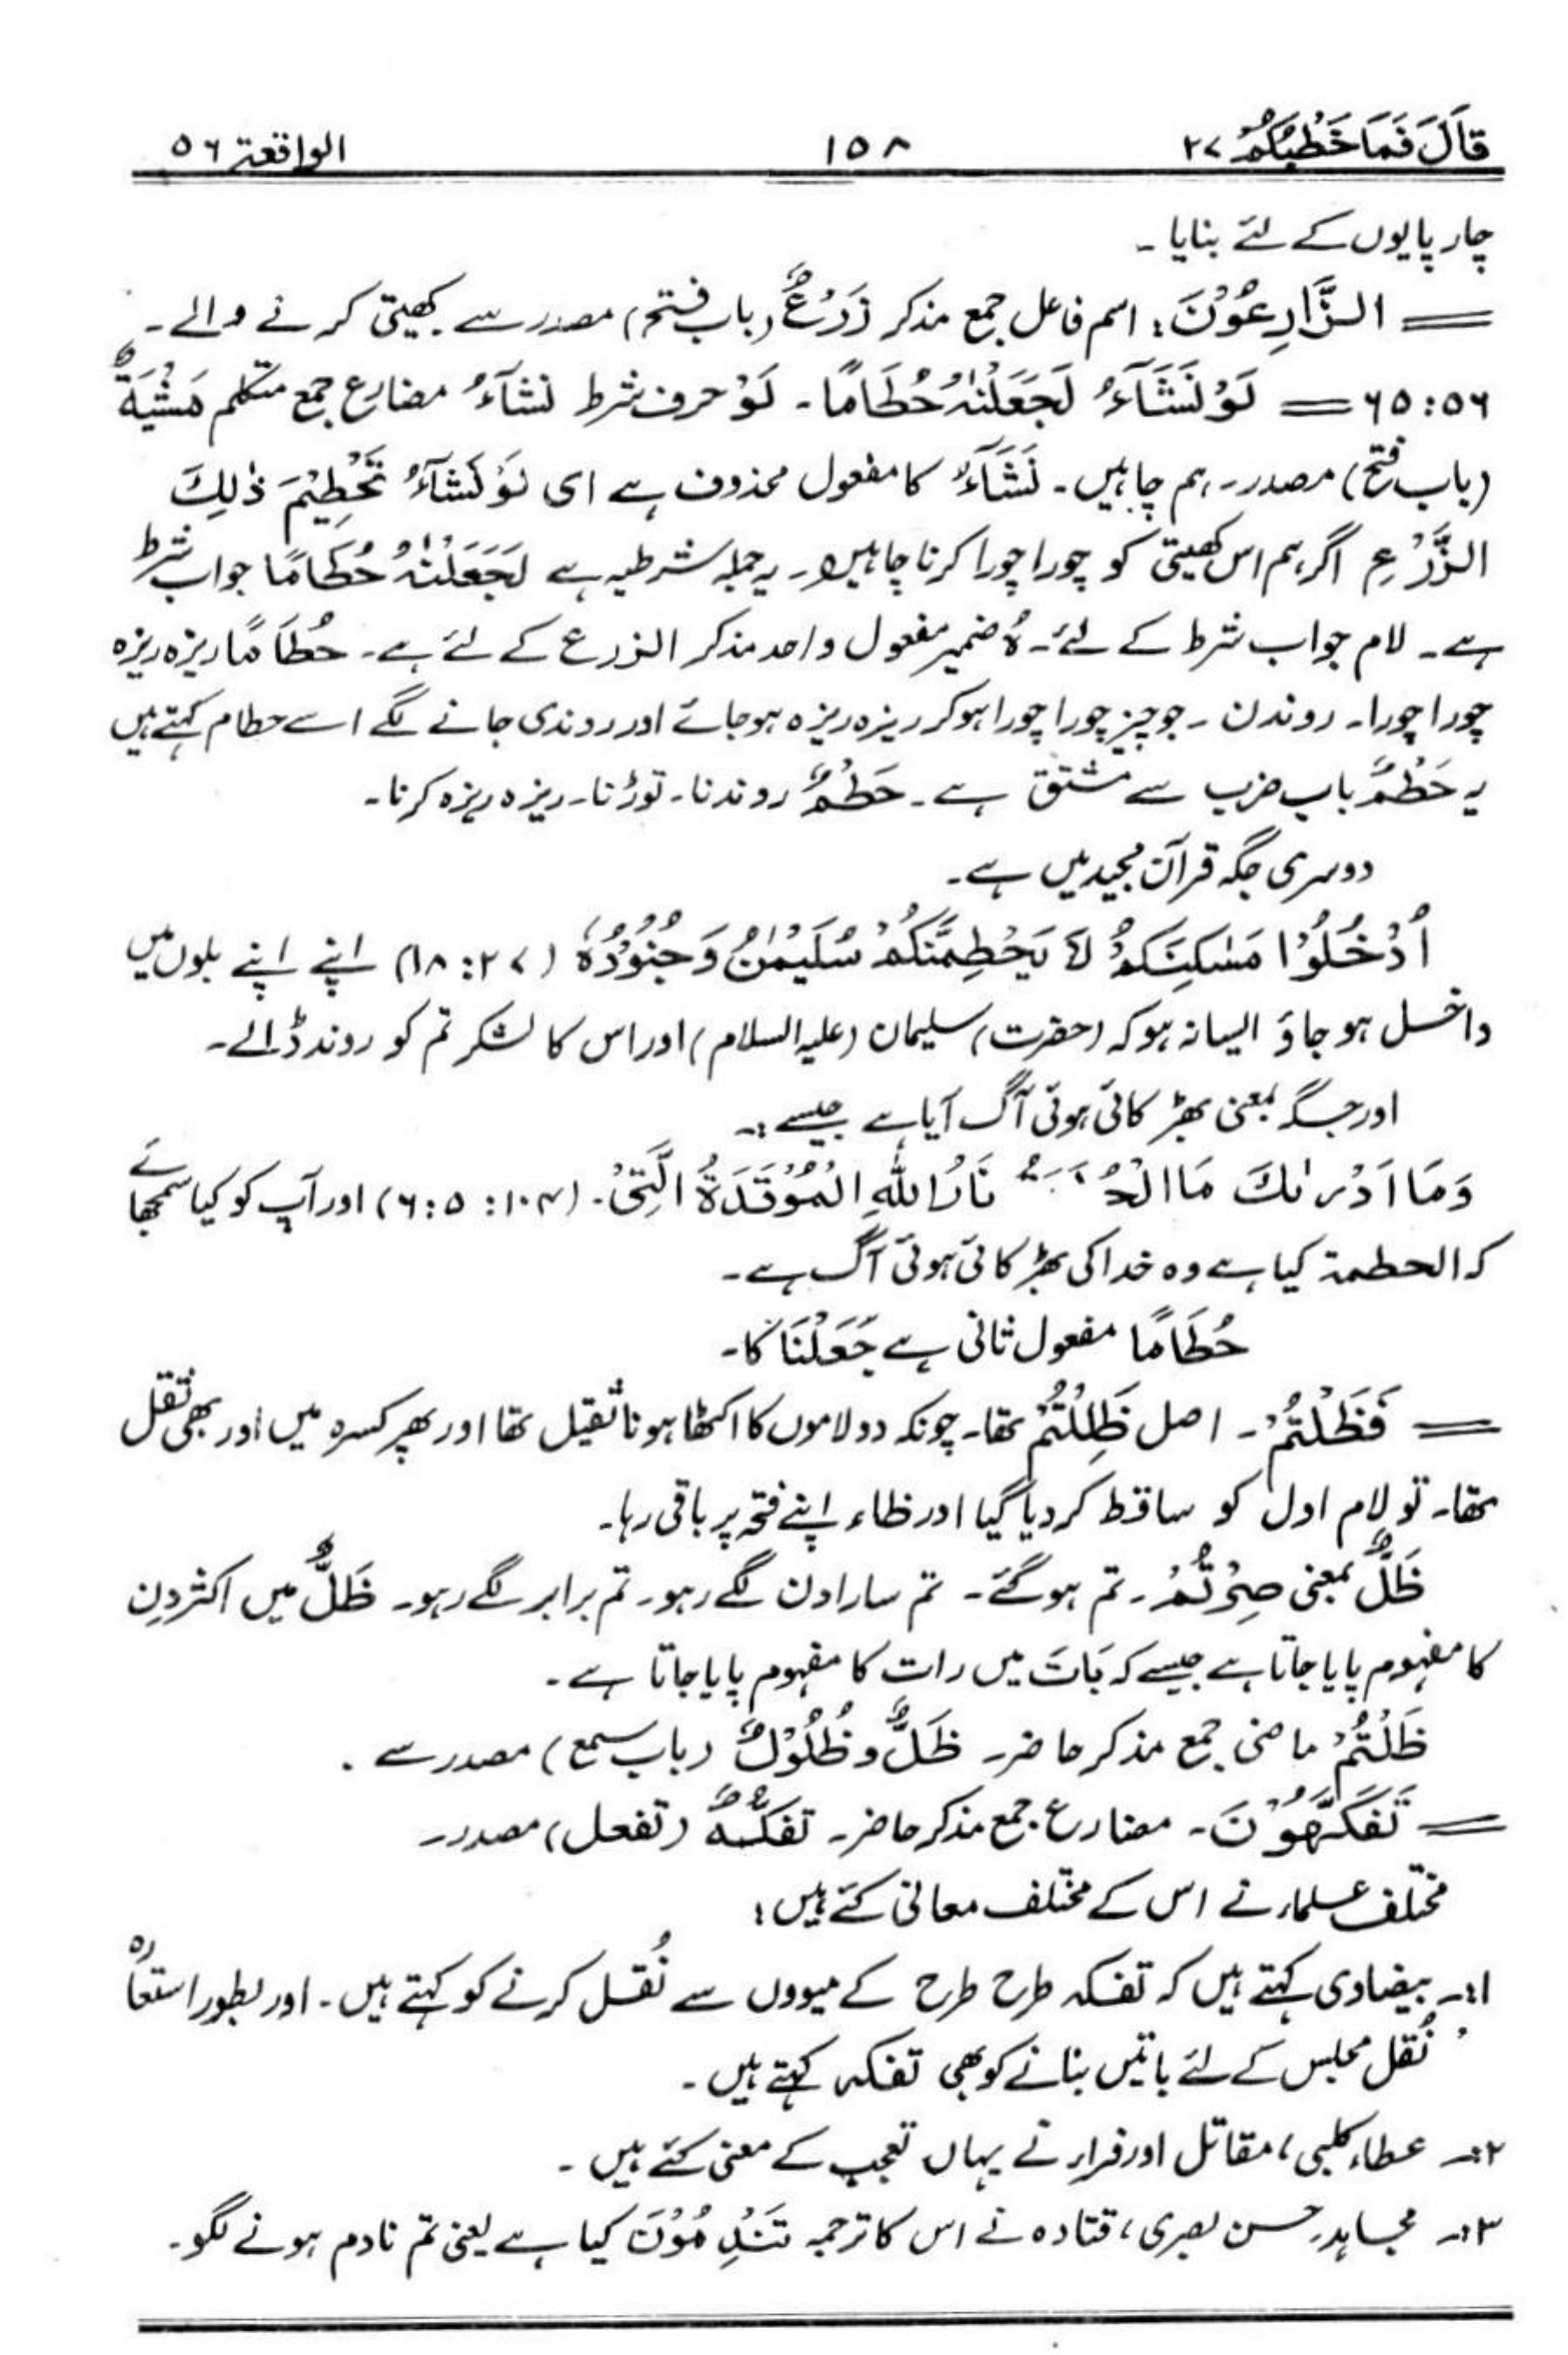 قَالَ فَمَا خَطْبُكُمْ ٢٧ ١٥٨ الواقعة ٥٦
چار پایوں کے لئے بنایا ۔
= الزَّارِعُوْنَ: اسم فاعل جمع مذکر زَرْعٌ (باب فتح) مصدر سے کھیتی کرنے والے ۔
٦٥:٥٦ = لَوْ نَشَآءُ لَجَعَلْنٰہُ حُطَامًا ۔ لَوْ حرف شرط نَشَآءُ مضارع جمع متکلم مَشْیَۃٌ
(باب فتح) مصدر ۔ ہم چاہیں ۔ نَشَآءُ کا مفعول محذوف ہے ای لَوْ نَشَآءُ تَحْطِیْمَ ذٰلِكَ
الزَّرْعِ اگر ہم اس کھیتی کو چورا چورا کرنا چاہیں ۔ یہ جملہ شرطیہ ہے لَجَعَلْنٰہُ حُطَامًا جواب شرط
ہے ۔ لام جواب شرط کے لئے ۔ ہُ ضمیر مفعول واحد مذکر الزرع کے لئے ہے ۔ حُطَامًا ریزہ ریزہ
چورا چورا ۔ روندن ۔ جو چیز چورا چورا ہوکر ریزہ ریزہ ہوجائے اور روندی جانے لگے اسے حطام کہتے ہیں
یہ حَطْمٌ باب ضرب سے مشتق ہے ۔ حَطْمٌ روندنا ۔ توڑنا ۔ ریزہ ریزہ کرنا ۔
دوسری جگہ قرآن مجید میں ہے ۔
اُدْخُلُوْا مَسٰكِنَكُمْ لَا يَحْطِمَنَّكُمْ سُلَيْمٰنُ وَجُنُوْدُهٗ (١٨:٢٧) اپنے اپنے بلوں میں
داخل ہو جاؤ ایسا نہ ہو کہ (حضرت) سلیمان (علیہ السلام) اور اس کا لشکر تم کو روند ڈالے ۔
اور جگہ بمعنی بھڑکائی ہوئی آگ آیا ہے جیسے :۔
وَمَا اَدْرٰىكَ مَا نَارُ اللّٰهِ الْمُوْقَدَةُ الَّتِيْ ۔ (١٠٤: ٦:٥) اور آپ کو کیا سمجھائے
کہ الحطمۃ کیا ہے وہ خدا کی بھڑکائی ہوئی آگ ہے ۔
حُطَامًا مفعول ثانی ہے جَعَلْنَا کا ۔
= فَظَلْتُمْ ۔ اصل ظَلِلْتُمْ تھا ۔ چونکہ دو لاموں کا اکٹھا ہونا ثقیل تھا اور پھر کسرہ میں اور بھی ثقل
تھا ۔ تو لام اول کو ساقط کر دیا گیا اور ظاء اپنے فتحہ پر باقی رہا ۔
ظَلَّ بمعنی صِرْتُمْ ۔ تم ہوگئے ۔ تم سارا دن لگے رہو ۔ تم برابر لگے رہو ۔ ظَلٌّ میں اکثر دن
کا مفہوم پایا جاتا ہے جیسے کہ بَاتَ میں رات کا مفہوم پایا جاتا ہے ۔
ظَلْتُمْ ماضی جمع مذکر حاضر ۔ ظَلٌّ وظُلُوْلٌ (باب سمع) مصدر سے .
= تَفَكَّهُوْنَ ۔ مضارع جمع مذکر حاضر ۔ تفَکُّہٌ (تفعل) مصدر ۔
مختلف علماء نے اس کے مختلف معانی کئے ہیں :
١:۔ بیضاوی کہتے ہیں کہ تفکہ طرح طرح کے میووں سے نُقل کرنے کو کہتے ہیں ۔ اور بطور استعارہ
نُقل مجلس کے لئے باتیں بنانے کو بھی تفکہ کہتے ہیں ۔
٢:۔ عطاء کلبی ، مقاتل اور فراء نے یہاں تعجب کے معنی کئے ہیں ۔
٣:۔ مجاہد ۔ حسن بصری ، قتادہ نے اس کا ترجمہ تَنْدِمُوْنَ کیا ہے یعنی تم نادم ہونے لگو ۔